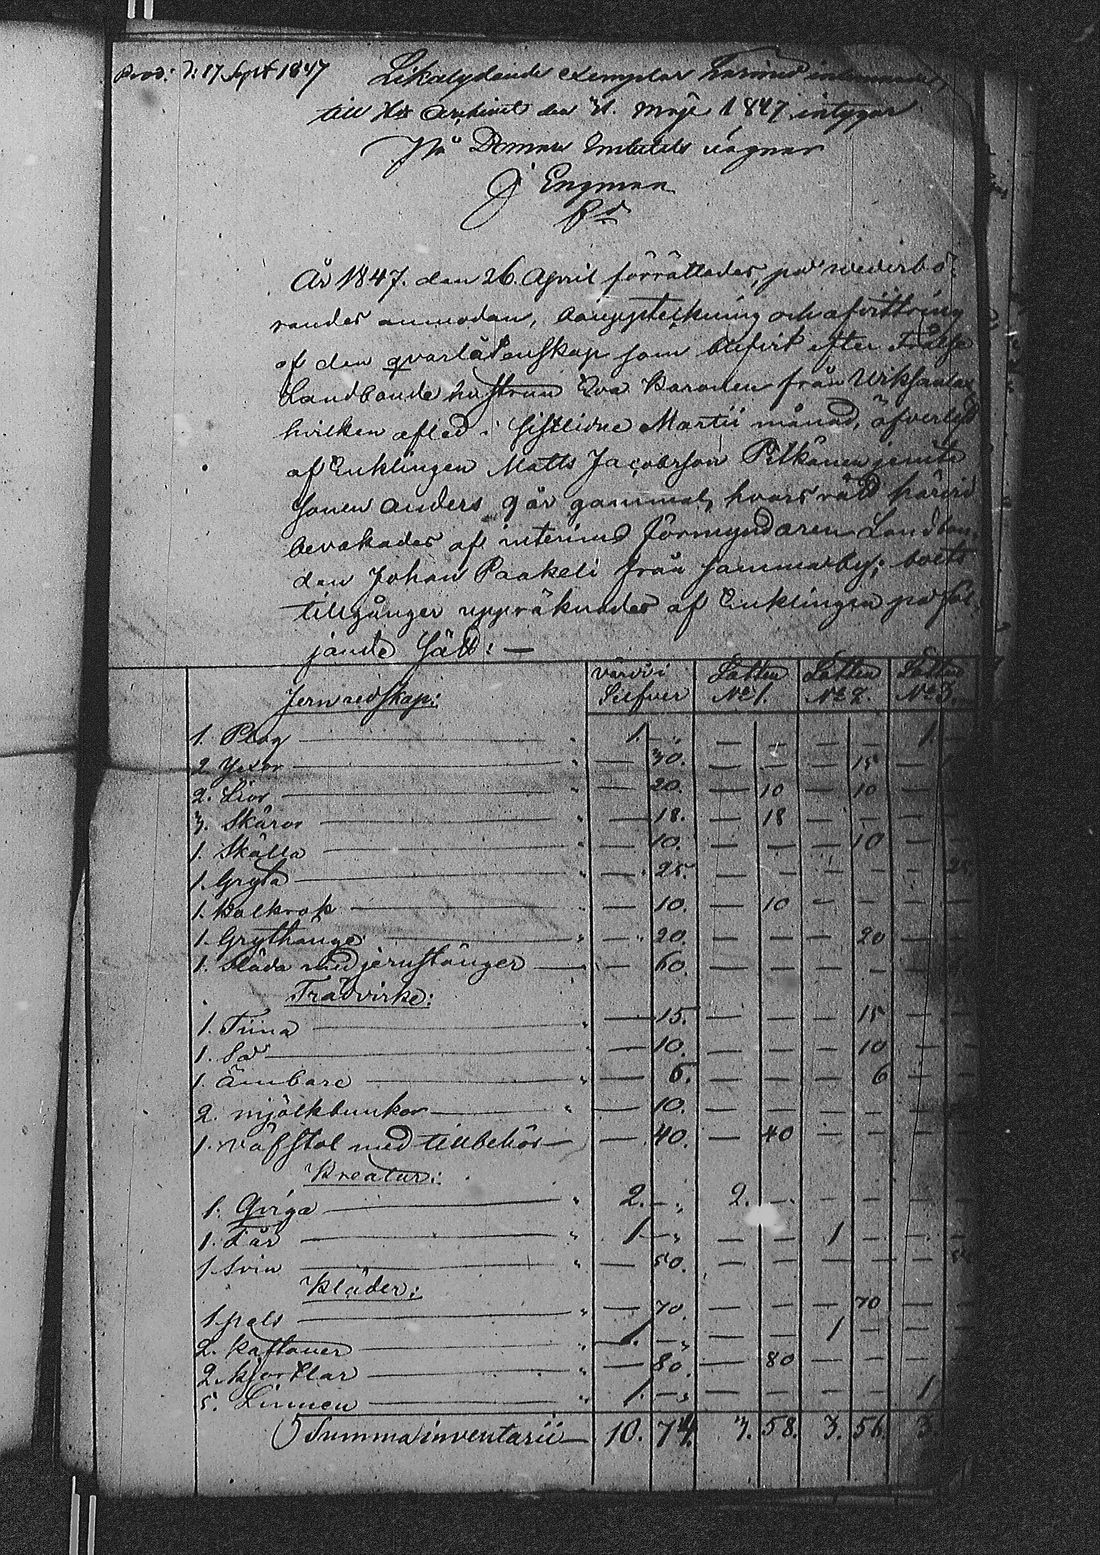 Prod: d: 17 Sept 1847
Likalydande exemplar härmed inlemnadt,
till HRs Archivet den 31. Maji 1847 intygar
På Domare Embetets vägnar
J Engman
År 1847. den 26. April förrättades, på wederbö-
randes anmodan, bouppteckning och afvittring
af den qvarlåtenskap som blifvit efter
Landbonde hustrun Eva Karonen från
hvilken afled i sistlidne Martii månad, öfverlefd
af Enklingen Matts Jacobsson Pitkänen jemte
sonen Anders 9 år gammal, hvars rätt härvid
bevakades af interims Förmyndaren Landbon-
den Johan Paakeli från Sammarby; boets
tillgångar uppräknades af Enklingen på föl-
jande sätt: —
Jernredskap: värde i Silfver Lotten No 1. Lotten No 2. Lotten No 3.
1. Plog — 1. — — — — — 1. —
2. Yxor — — 30. — — — 15 —
2. Liar — — 20. — 10 — 10 — —
3. Skäror — — 18. — 18 — — — —
1. Skälla — — 10. — — — 10 — —
1. Gryta — — 25. — — — — — 25
1. Kolkrok — — 10. — 10 — — — —
1. Grythänge — — 20. — — — 20 — —
1. Släda med jernstänger — — 60. — — — — —
Trädvirke:
1. Tina — — 15. — — — 15 — —
1. Så — — 10. — — — 10 — —
1. Ämbare — — 6. — — — 6 — —
2. mjölkbunkar — — 10. — — — — —
1. Väfstol med tillbehör — — 40. — 40 — — — —
Kreatur:
1. Qviga — 2. — 2. — — — — —
1. Får — 1 — — — 1 — — —
1 Svin — — 50. — — — — — 50
Kläder:
1 päls — — 70. — — — 70 — —
2. Kaftaner — 1. — — — 1 — — —
2. Kjortlar — — 80 — 80 — — — —
5. Linnen — 1. — — — — — 1
Summa inventarii — 10. 74. 3. 58. 3. 56. 3.